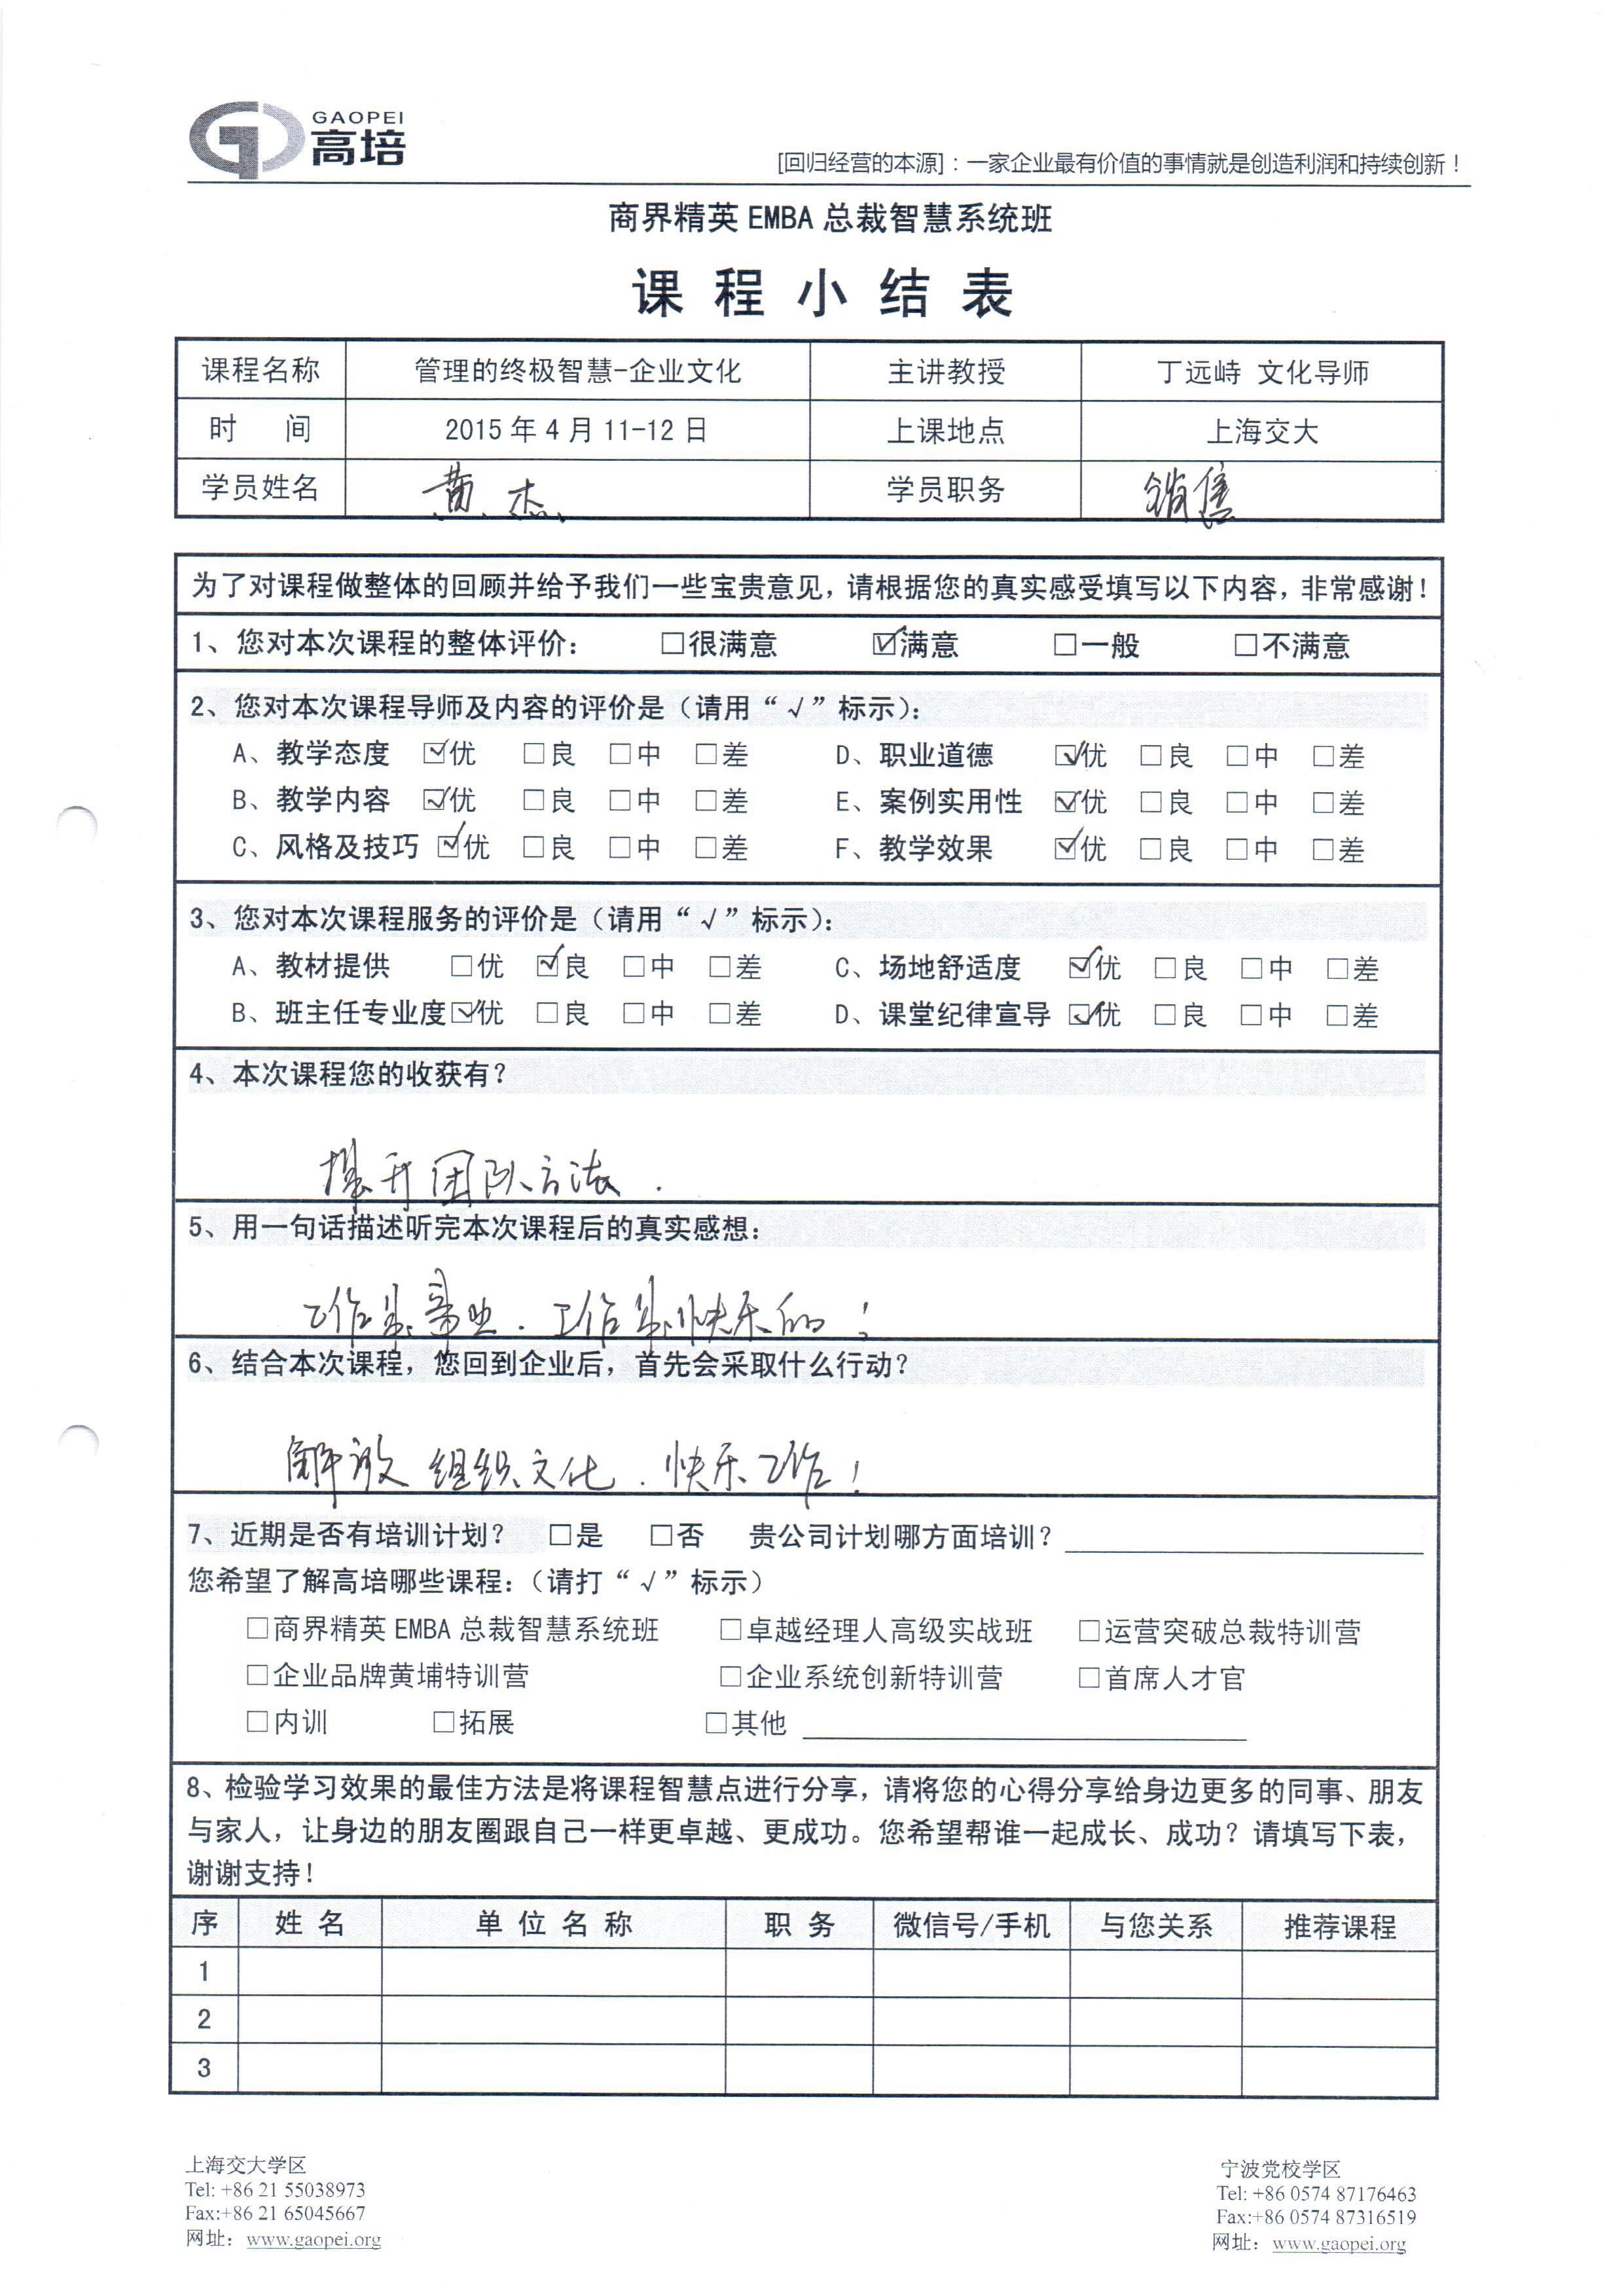 GAOPEI
高培
[回归经营的本源]：一家企业最有价值的事情就是创造利润和持续创新！
商界精英 EMBA 总裁智慧系统班
课程小结表
课程名称 管理的终极智慧-企业文化 主讲教授 丁远峙 文化导师
时 间 2015 年 4 月 11-12 日 上课地点 上海交大
学员姓名 黄杰 学员职务 销售
为了对课程做整体的回顾并给予我们一些宝贵意见，请根据您的真实感受填写以下内容，非常感谢！
1、您对本次课程的整体评价： □很满意 ☑满意 □一般 □不满意
2、您对本次课程导师及内容的评价是（请用“√”标示）：
A、教学态度 ☑优 □良 □中 □差 D、职业道德 ☑优 □良 □中 □差
B、教学内容 ☑优 □良 □中 □差 E、案例实用性 ☑优 □良 □中 □差
C、风格及技巧 ☑优 □良 □中 □差 F、教学效果 ☑优 □良 □中 □差
3、您对本次课程服务的评价是（请用“√”标示）：
A、教材提供 □优 ☑良 □中 □差 C、场地舒适度 ☑优 □良 □中 □差
B、班主任专业度 ☑优 □良 □中 □差 D、课堂纪律宣导 ☑优 □良 □中 □差
4、本次课程您的收获有？
提升团队方法.
5、用一句话描述听完本次课程后的真实感想：
工作是事业.工作是快乐的！
6、结合本次课程，您回到企业后，首先会采取什么行动？
解放组织文化.快乐工作！
7、近期是否有培训计划？ □是 □否 贵公司计划哪方面培训？
您希望了解高培哪些课程：（请打“√”标示）
□商界精英 EMBA 总裁智慧系统班 □卓越经理人高级实战班 □运营突破总裁特训营
□企业品牌黄埔特训营 □企业系统创新特训营 □首席人才官
□内训 □拓展 □其他
8、检验学习效果的最佳方法是将课程智慧点进行分享，请将您的心得分享给身边更多的同事、朋友
与家人，让身边的朋友圈跟自己一样更卓越、更成功。您希望帮谁一起成长、成功？请填写下表，
谢谢支持！
序 姓名 单位名称 职务 微信号/手机 与您关系 推荐课程
1
2
3
上海交大学区
Tel: +86 21 55038973
Fax:+86 21 65045667
网址：www.gaopei.org
宁波党校学区
Tel: +86 0574 87176463
Fax:+86 0574 87316519
网址：www.gaopei.org